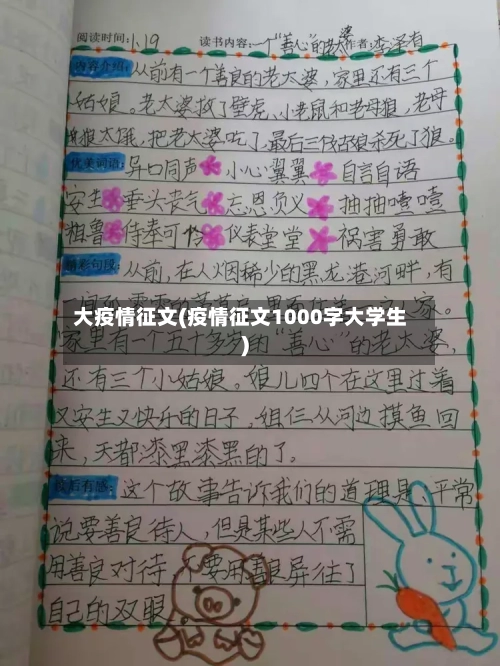 阅读时间:1.19 读书内容:一个"善心"的老太婆 作者:李泽有
内容介绍:从前有一个善良的老太婆,家里还有三个
姑娘。老太婆救了壁虎、小老鼠和老母狼,老母
狼太饿,把老太婆吃了,最后三个姑娘杀死了狼。
优美词语:异口同声 小心翼翼 自言自语
安生 垂头丧气 忘恩负义 抽抽噎噎
粗鲁 侍奉可修 仪表堂堂 祸害 勇敢
精彩句段:从前,在人烟稀少的黑龙港河畔,有
大疫情征文(疫情征文1000字大学生
)
家里有一个五十多岁的"善心"的老太婆,
还有三个小姑娘。娘儿四个在这里过着
又安生又快乐的日子,姐仨从河边摸鱼回
来,天都漆黑漆黑的了。
读后有感:这个故事告诉我们的道理是,平常
说要善良待人,但是某些人不需
用善良对待,不要用善良屏住了
自己的双眼